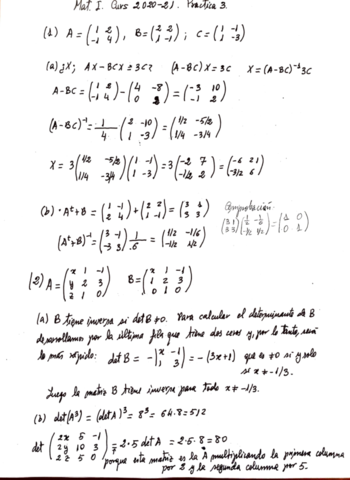 Mat. I. Curs 2020-21. Practica 3.
(1) A = (1 2; -1 4), B = (2 2; 1 -1); C = (1 -1; 1 -3)
(a) ¿X; AX-BCX = 3C? (A-BC)X = 3C X = (A-BC)⁻¹3C
A-BC = (1 2; -1 4) - (4 -8; 0 2) = (-3 10; -1 2)
(A-BC)⁻¹ = 1/4 (2 -10; 1 -3) = (1/2 -5/2; 1/4 -3/4)
X = 3 (1/2 -5/2; 1/4 -3/4) (1 -1; 1 -3) = 3 (-2 7; -1/2 2) = (-6 21; -3/2 6)
(b). Aᵗ+B = (1 -1; 2 4) + (2 2; 1 -1) = (3 1; 3 3)
Comprobación:
(Aᵗ+B)⁻¹ = (3 -1; -3 3) 1/6 = (1/2 -1/6; -1/2 1/2)
(2) A = (x 1 -1; y 2 3; z 1 0) B = (x 1 -1; 1 2 3; 0 1 0)
(a) B tiene inversa si det B ≠ 0. Para calcular el determinante de B
desarrollamos por la última fila que tiene dos ceros y, por lo tanto, será
lo más rápido: det B = -1 |x -1; 1 3| = -(3x+1) que es ≠ 0 si y solo
si x ≠ -1/3.
Luego la matriz B tiene inversa para todo x ≠ -1/3.
(b) det(A³) = (det A)³ = 8³ = 64.8 = 512
det (2x 5 -1; 2y 10 3; 2z 5 0) = 2.5 det A = 2.5.8 = 80
porque esta matriz es la A multiplicando la primera columna
por 2 y la segunda columna por 5.